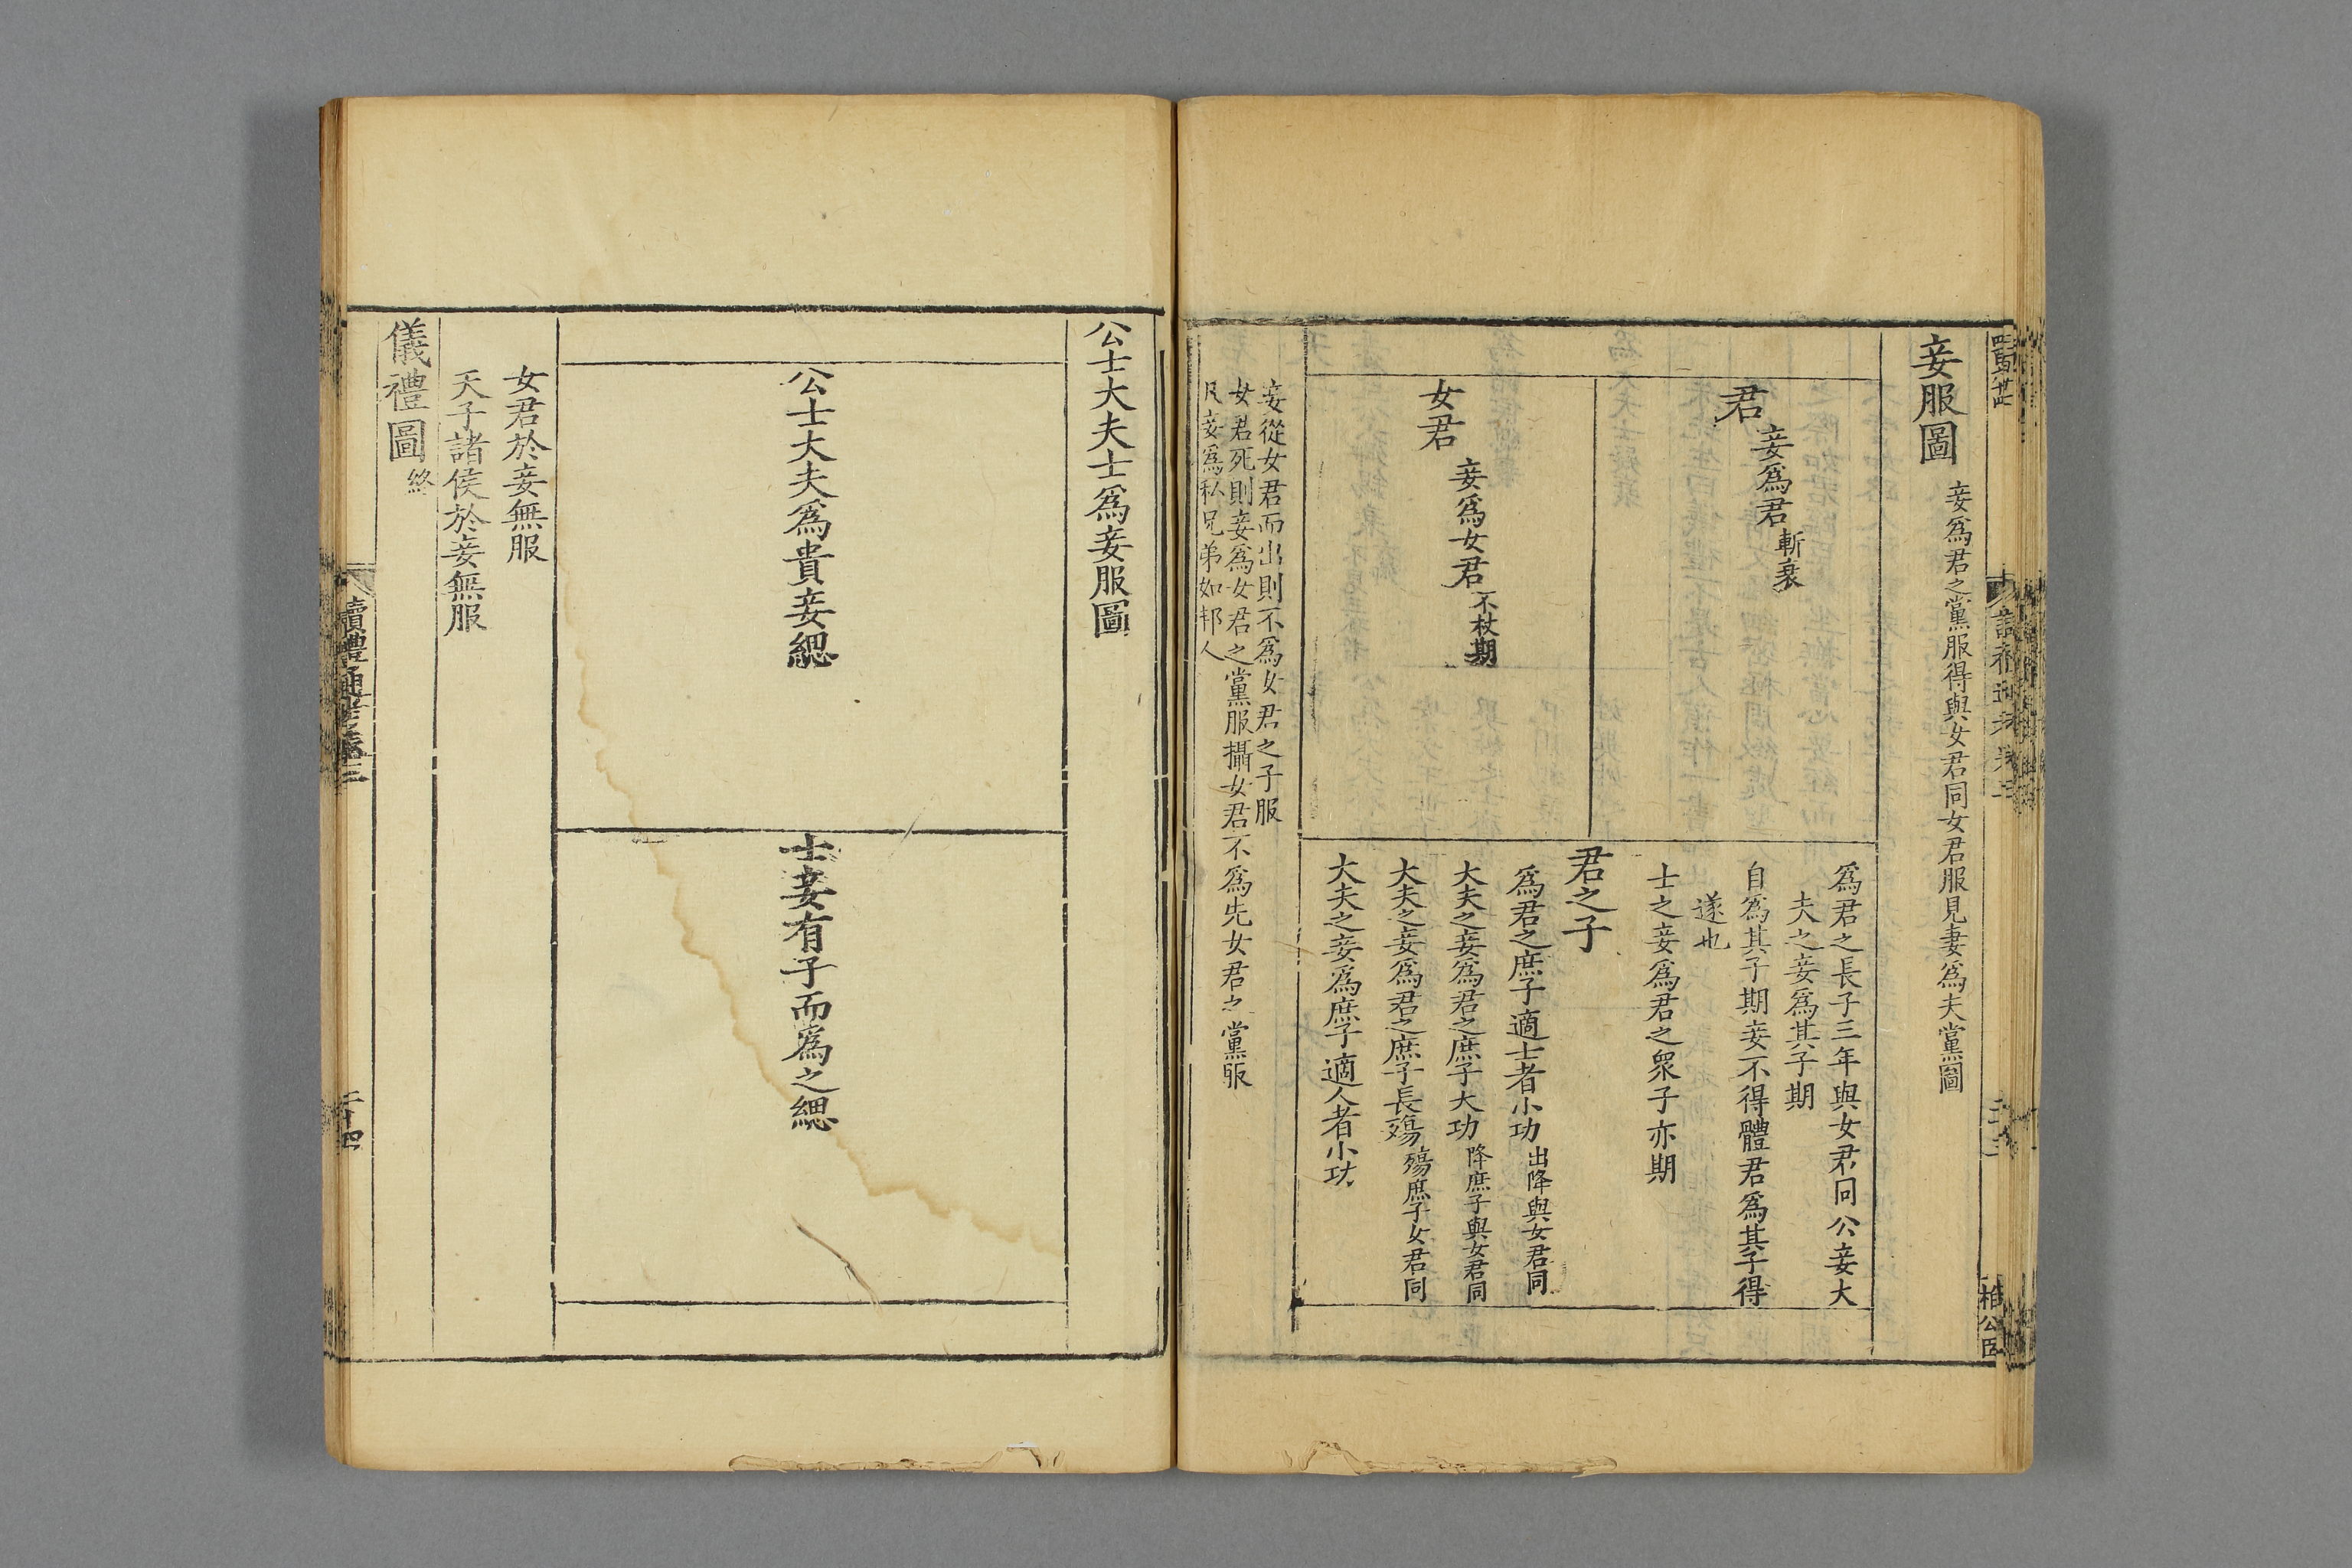 妾服圖
妾爲君之黨服得與女君同女君服見妻爲夫黨圖
君
妾爲君
斬衰
女君
妾爲女君
不杖期
爲君之長子三年與女君同公妾大
夫之妾爲其子期
自爲其子期妾不得體君爲其子得
遂也
士之妾爲君之衆子亦期
君之子
爲君之庶子適士者小功
出降與女君同
大夫之妾爲君之庶子大功
降庶子與女君同
大夫之妾爲君之庶子長殤
殤庶子女君同
大夫之妾爲庶子適人者小功
妾從女君而出則不爲女君之子服
女君死則妾爲女君之黨服攝女君不爲先女君之黨服
凡妾爲私兄弟如邦人
公士大夫士爲妾服圖
公士大夫爲貴妾緦
士妾有子而爲之緦
女君於妾無服
天子諸侯於妾無服
儀禮圖
終
讀禮通考卷三
二十四